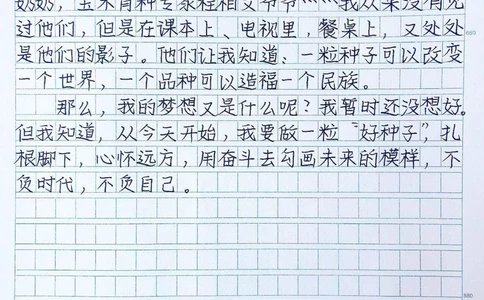 奶奶，玉米育种专家程相文爷爷……我从来没有见
过他们，但是在课本上、电视里，餐桌上，又处处
是他们的影子。他们让我知道、一粒种子可以改变
一个世界，一个品种可以造福一个民族。
那么，我的梦想又是什么呢？我暂时还没想好。
但我知道，从今天开始，我要做一粒“好种子”，扎
根脚下，心怀远方，用奋斗去勾画未来的模样，不
负时代，不负自己。
880